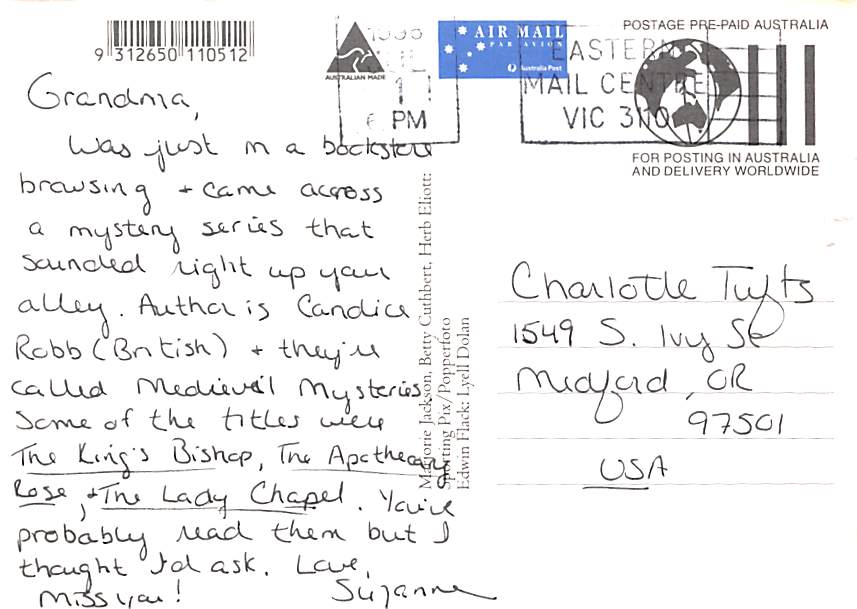 9 312650 110512
AUSTRALIAN MADE
1998
JUL
1
6 PM
AIR MAIL
PAR AVION
Australia Post
EASTERN
MAIL CENTRE
VIC 3110
POSTAGE PRE-PAID AUSTRALIA
FOR POSTING IN AUSTRALIA
AND DELIVERY WORLDWIDE
Grandma,
Was just in a bookstore
browsing + came across
a mystery series that
sounded right up your
alley. Author is Candice
Robb (British) + they're
called Medieval Mysteries.
Some of the titles were
The King's Bishop, The Apothecary
Rose, + The Lady Chapel. You've
probably read them but I
thought I'd ask. Love,
Miss you! Suzanne
Marjorie Jackson, Betty Cuthbert, Herb Elliott:
Sporting Pix/Popperfoto
Edwin Flack: Lyell Dolan
Charlotte Tufts
1549 S. Ivy St
Medford, OR
97501
USA